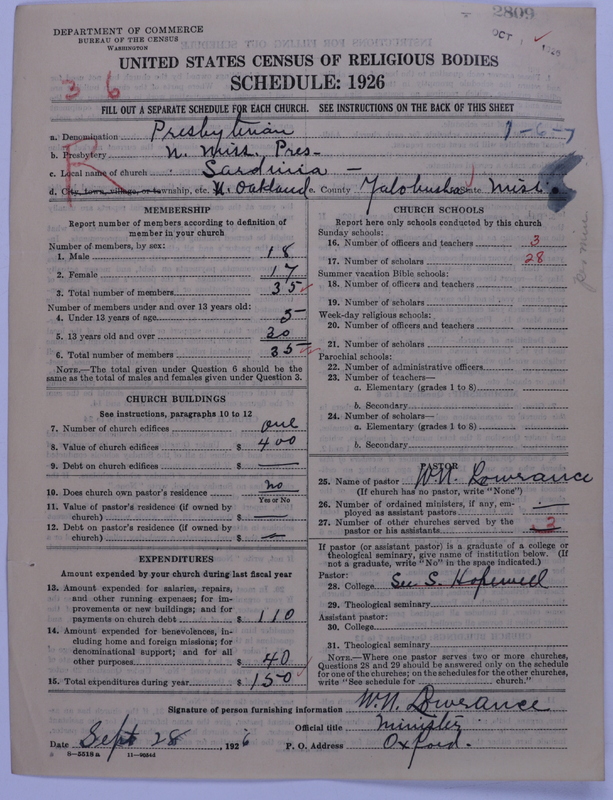 2809
DEPARTMENT OF COMMERCE
BUREAU OF THE CENSUS
WASHINGTON
OCT
UNITED STATES CENSUS OF RELIGIOUS BODIES
SCHEDULE: 1926
3 6
FILL OUT A SEPARATE SCHEDULE FOR EACH CHURCH. SEE INSTRUCTIONS ON THE BACK OF THIS SHEET
a. Denomination Presbyterian 1-6-7
b. Presbytery N. Miss. Pres-
R
c. Local name of church Sardinia -
d. City, town, village, or township, etc. N. Oakland e. County Yalobusha State Miss.
MEMBERSHIP
Report number of members according to definition of member in your church
Number of members, by sex:
1. Male 18
2. Female 17
3. Total number of members 35
Number of members under and over 13 years old:
4. Under 13 years of age 5
5. 13 years old and over 30
6. Total number of members 35
NOTE.—The total given under Question 6 should be
same as the total of males and females given under Question 3.
CHURCH BUILDINGS
See instructions, paragraphs 10 to 12
7. Number of church edifices one
8. Value of church edifices $ 400
9. Debt on church edifices $ —
10. Does church own pastor's residence no
Yes or No
11. Value of pastor's residence (if owned by
church) $ —
12. Debt on pastor's residence (if owned by
church) $ —
EXPENDITURES
Amount expended by your church during last fiscal year
13. Amount expended for salaries, repairs,
and other running expenses; for im-
provements or new buildings; and for
payments on church debt $ 110
14. Amount expended for benevolences, in-
cluding home and foreign missions; for
denominational support; and for all
other purposes $ 40
15. Total expenditures during year $ 150
CHURCH SCHOOLS
Report here only schools conducted by this church
Sunday schools:
16. Number of officers and teachers 3
17. Number of scholars 28
Summer vacation Bible schools:
18. Number of officers and teachers
19. Number of scholars
Week-day religious schools:
20. Number of officers and teachers
21. Number of scholars
Parochial schools:
22. Number of administrative officers
23. Number of teachers—
a. Elementary (grades 1 to 8)
b. Secondary
24. Number of scholars—
a. Elementary (grades 1 to 8)
b. Secondary
PASTOR
25. Name of pastor W.N. Lowrance
(If church has no pastor, write "None")
26. Number of ordained ministers, if any, em-
ployed as assistant pastors —
27. Number of other churches served by the
pastor or his assistants 3
If pastor (or assistant pastor) is a graduate of a college or
theological seminary, give name of institution below. (If
not a graduate, write "No" in the space indicated.)
Pastor:
28. College See S. Hopewell
29. Theological seminary
Assistant pastor:
30. College
31. Theological seminary
NOTE.—Where one pastor serves two or more churches,
Questions 28 and 29 should be answered only on the schedule
for one of the churches; on the schedules for the other churches,
write "See schedule for church."
Signature of person furnishing information W.N. Lowrance
Official title Minister
Date Sept 28, 1926 P. O. Address Oxford.
8-5518a